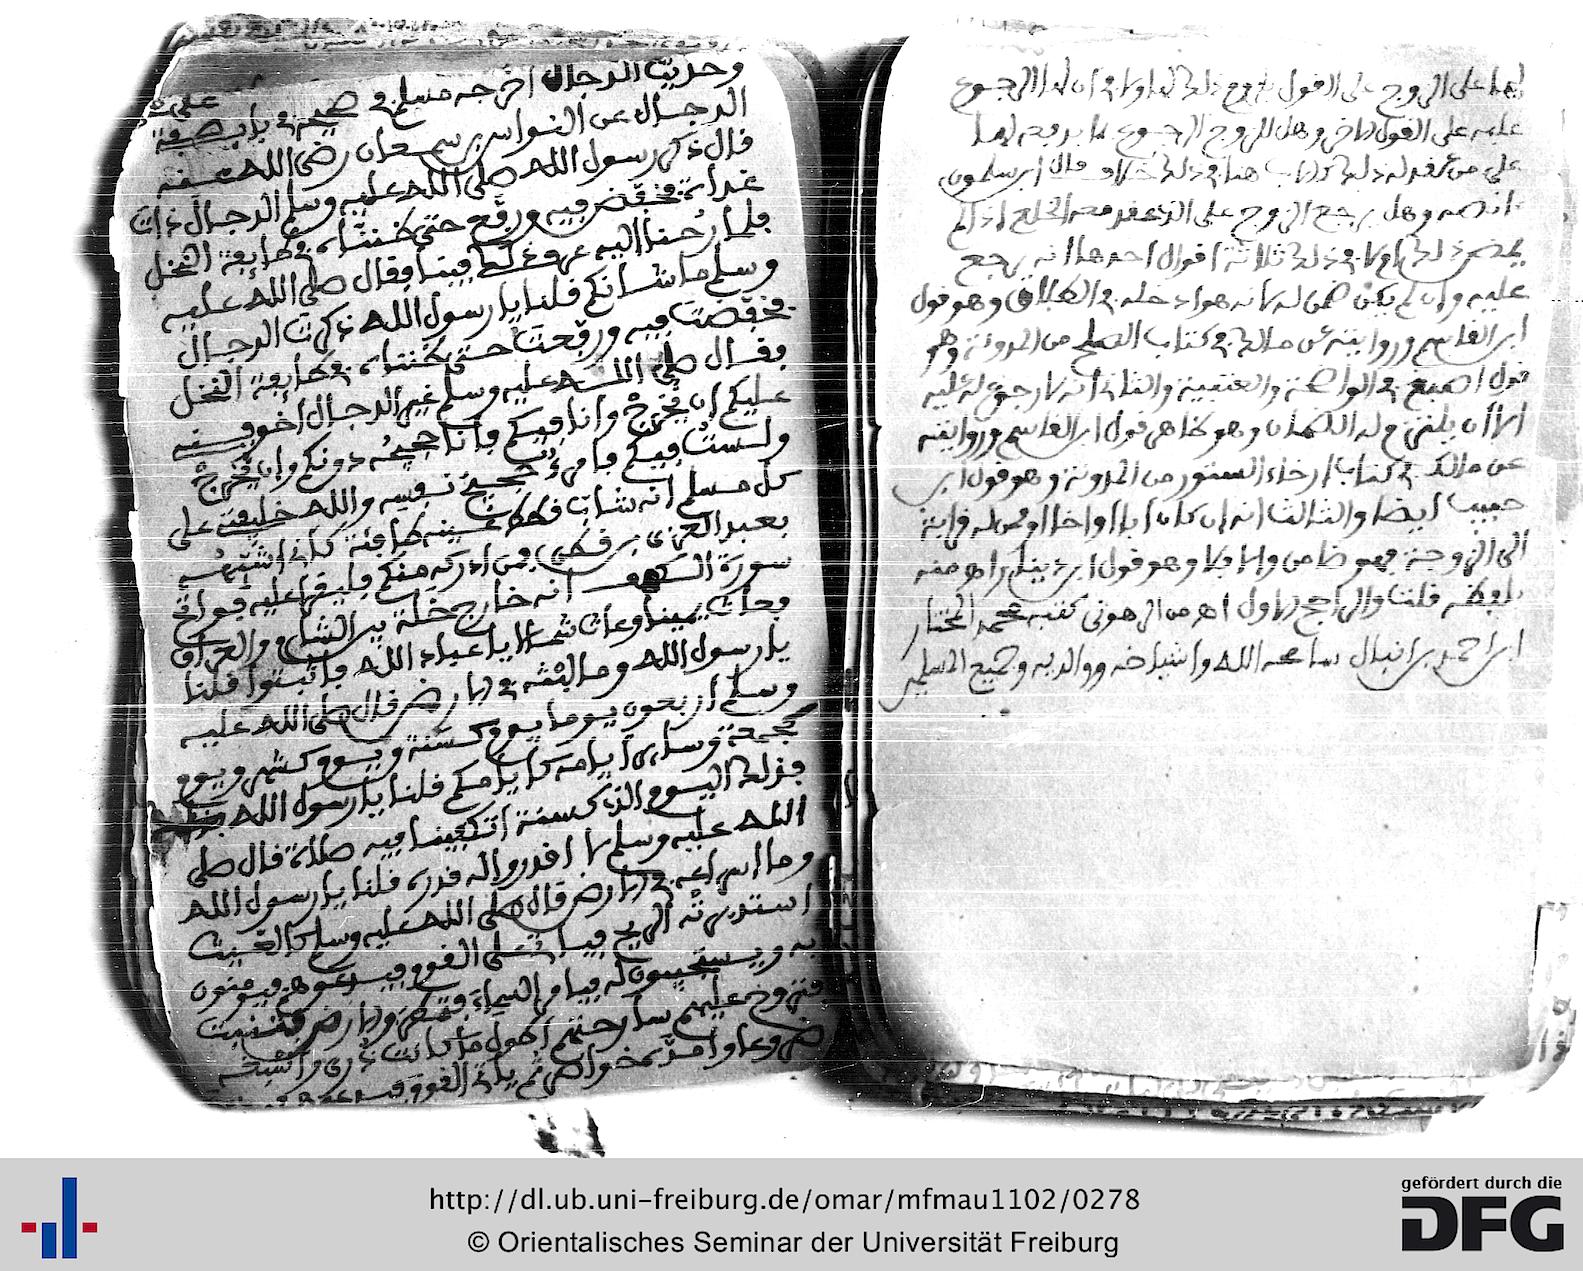 لها على الزوج على القول
عليه على القول الاخر وهل للزوج الرجوع بما يدفعه لها
على من
وهل يرجع الزوج على الذي عقد معه الخلع اذا لم
يضمن ذلك ام لا في ذلك ثلاثة اقوال احدها انه يرجع
عليه وان لم يكن ضمن له لانه هو ادخله في الطلاق وهو قول
ابن القاسم وروايته عن مالك في كتاب الصلح من المدونة وهو
قول اصبغ في الواضحة والعتبية والثاني انه لا رجوع له عليه
الا ان يلتزم له الضمان وهو ظاهر قول ابن القاسم وروايته
عن مالك في كتاب ارخاء الستور من المدونة وهو قول ابن
حبيب ايضا والثالث انه ان كان ابا او اخا او من له قرابة
الى الزوجة فهو ضامن والا فلا وهو قول ابن دينار اهـ منه
بلفظه قلت والراجح الاول اهـ من الرهوني كتبه محمد المختار
ابن احمد بن انبال سامحه الله واشياخه ووالديه وجميع المسلمين
وحديث الدجال اخرجه مسلم في صحيحه في باب صفة
الدجال عن النواس بن سمعان رضي الله عنه
قال ذكر رسول الله صلى الله عليه وسلم الدجال ذات
غداة فخفض فيه ورفع حتى ظنناه في طايفة النخل
فلما رحنا اليه عرف ذلك فينا فقال صلى الله عليه
وسلم ما شانكم قلنا يا رسول الله ذكرت الدجال
فخفضت فيه ورفعت حتى ظنناه في طايفة النخل
فقال صلى الله عليه وسلم غير الدجال اخوفني
عليكم ان يخرج وانا فيكم فانا حجيجه دونكم وان يخرج
ولست فيكم فامرء حجيج نفسه والله خليفتي على
كل مسلم انه شاب قطط عينه طافئة كاني اشبهه
بعبد العزى بن قطن فمن ادركه منكم فليقرا عليه فواتح
سورة الكهف انه خارج خلة بين الشام والعراق
فعاث يمينا وعاث شمالا يا عباد الله فاثبتوا قلنا
يا رسول الله وما لبثه في الارض قال صلى الله عليه
وسلم اربعون يوما يوم كسنة ويوم كشهر ويوم
كجمعة وسائر ايامه كايامكم قلنا يا رسول الله
فذلك اليوم الذي كسنة اتكفينا فيه صلاة قال صلى
الله عليه وسلم لا اقدروا له قدره قلنا يا رسول الله
وما اسراعه في الارض قال صلى الله عليه وسلم كالغيث
استدبرته الريح فياتي على القوم فيدعوهم فيومنون
به ويستجيبون له فيامر السماء فتمطر والارض فتنبت
فتروح عليهم سارحتهم اطول ما كانت ذرى واشبعه
ضروعا وامده خواصر ثم ياتي القوم
http://dl.ub.uni-freiburg.de/omar/mfmau1102/0278
© Orientalisches Seminar der Universität Freiburg
gefördert durch die
DFG